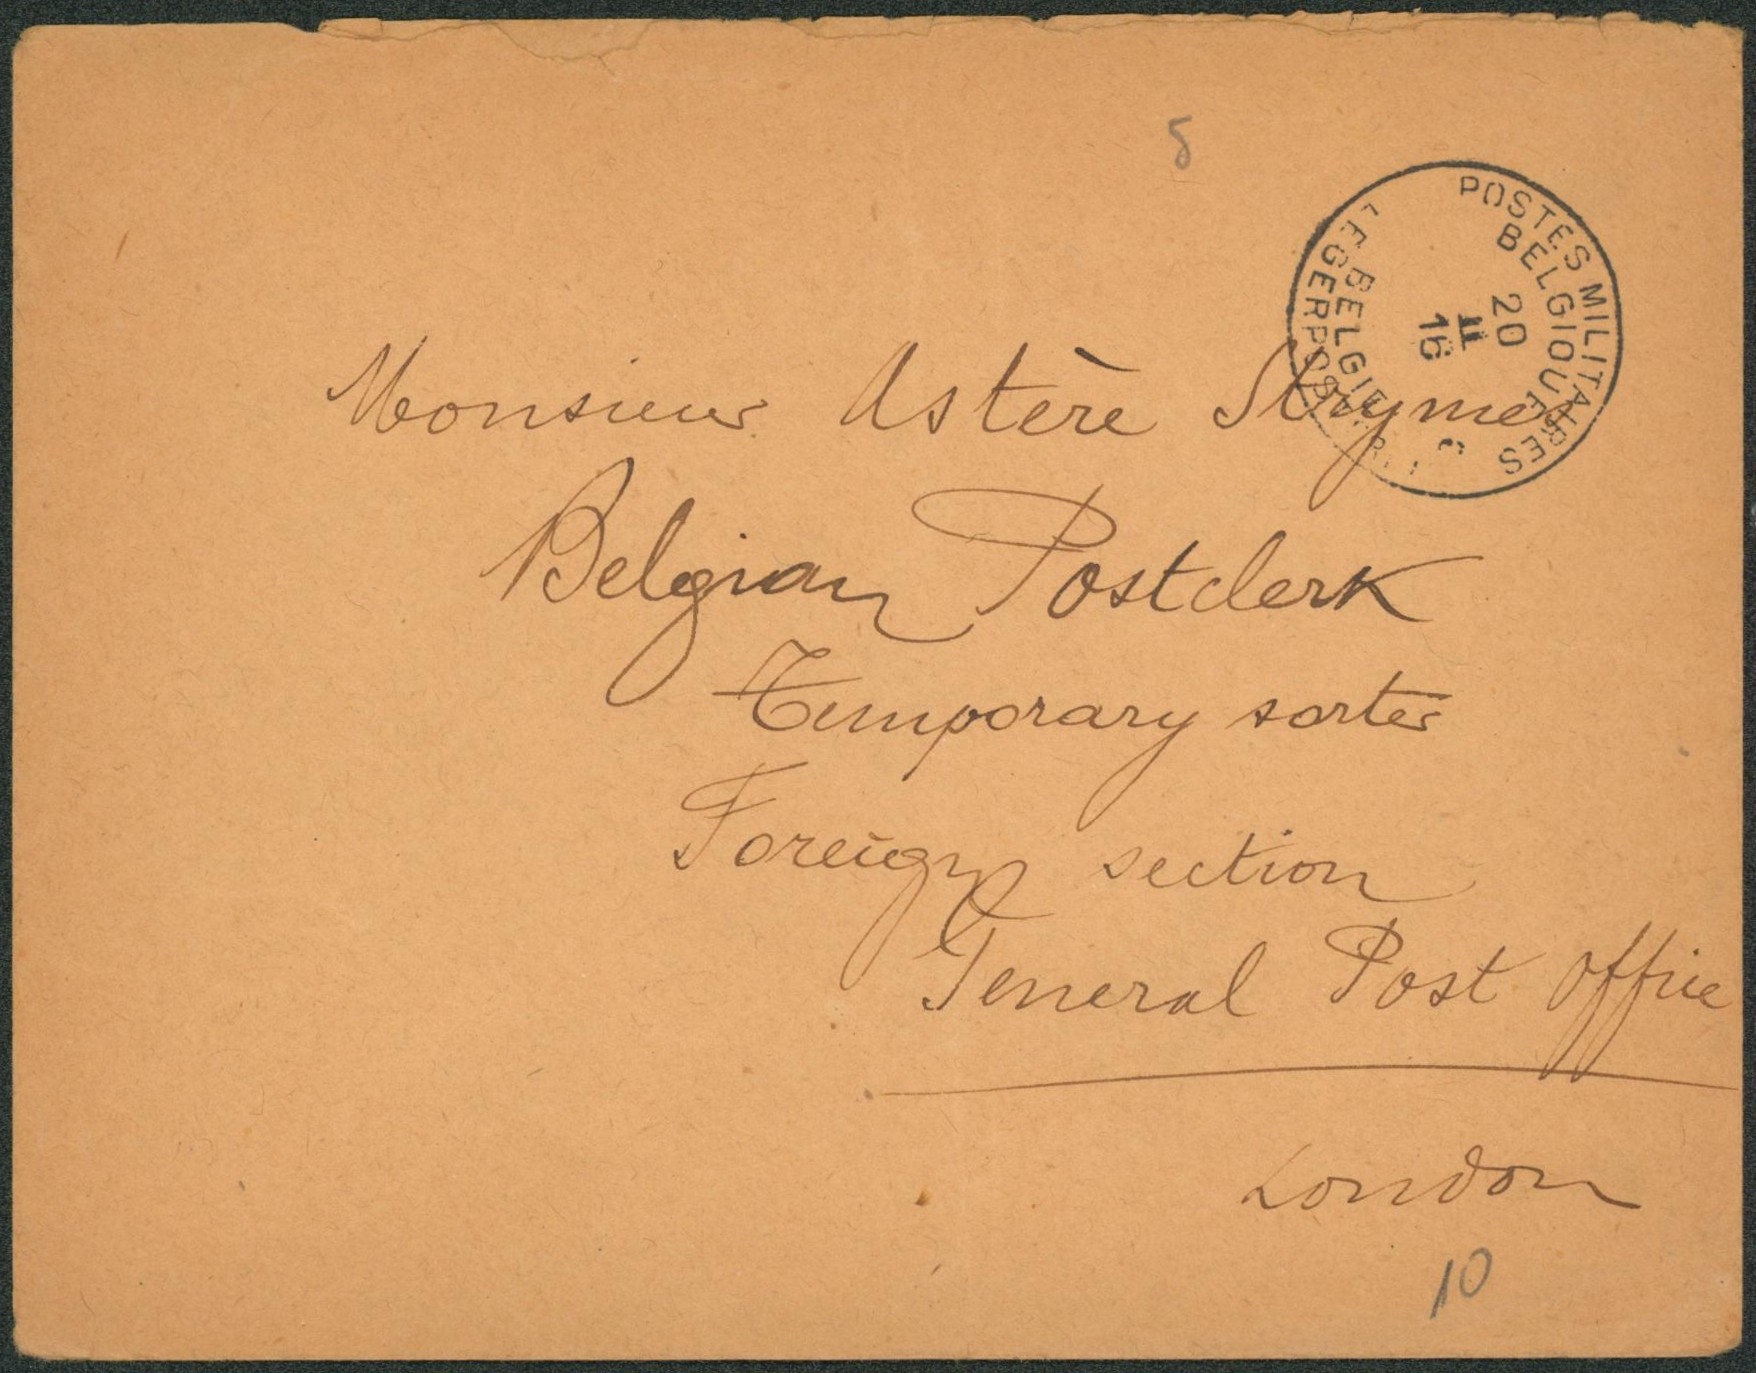 5
POSTES MILITAIRES
BELGIQUE
20
II
16
BELGIE
LEGERPOST
Monsieur Astère
Belgian Postclerk
Temporary sorter
Foreign section
General Post Office
London
10